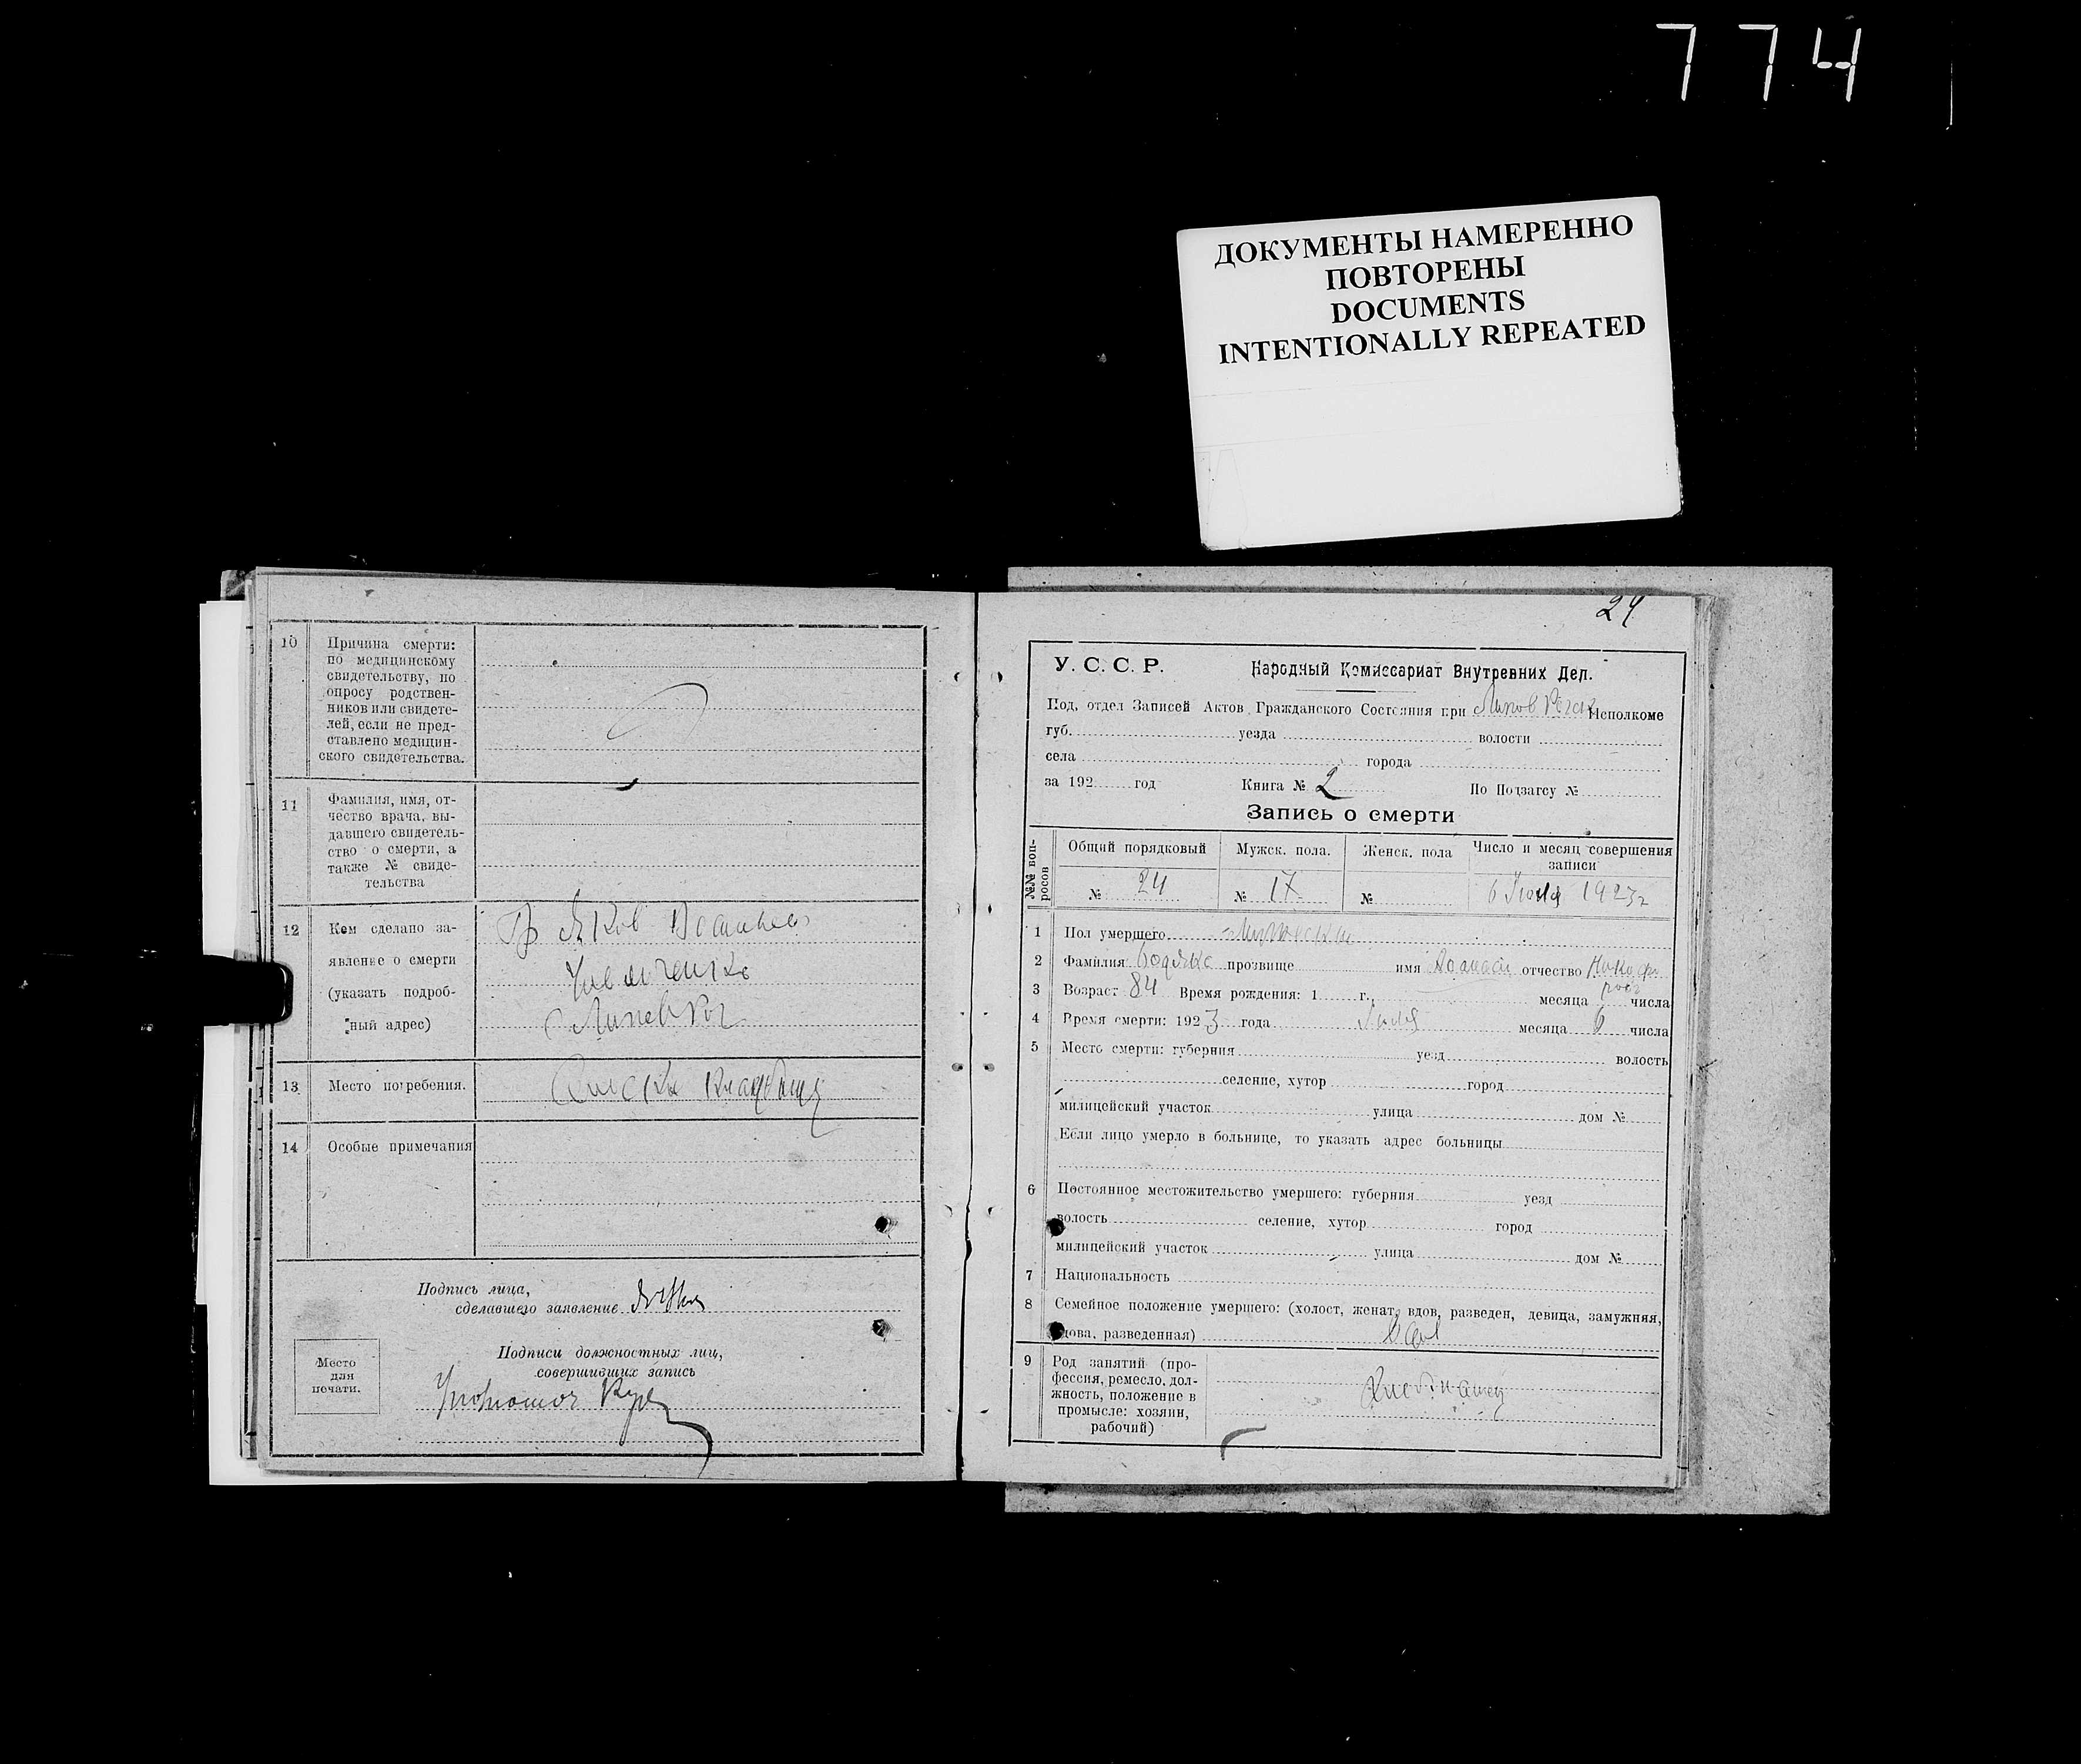 774
ДОКУМЕНТЫ НАМЕРЕННО
ПОВТОРЕНЫ
DOCUMENTS
INTENTIONALLY REPEATED
10
Причина смерти:
по медицинскому
свидетельству, по
опросу родствен-
ников или свидете-
лей, если не пред-
ставлено медицин-
ского свидетельства.
11
Фамилия, имя, от-
чество врача, вы-
давшего свидетель-
ство о смерти, а
также № свиде-
тельства
12
Кем сделано за-
явление о смерти
(указать подроб-
ный адрес)
Гр Яков
13
Место погребения.
14
Особые примечания
Подпись лица,
сделавшего заявление
Подписи должностных лиц,
совершивших запись
Место
для
печати.
24
У. С. С. Р. Народный Комиссариат Внутренних Дел.
Под. отдел Записей Актов Гражданского Состояния при Исполкоме
губ. уезда волости
села города
за 192 год Книга № 2 По Подзагсу №
Запись о смерти
№№ воп-
росов
Общий порядковый Мужск. пола. Женск. пола Число и месяц совершения
записи
№ 24 № 17 № 6 1923 г
1 Пол умершего
2 Фамилия прозвище имя отчество
3 Возраст 84 Время рождения: 1 г. месяца числа
4 Время смерти: 1923 года месяца 6 числа
5 Место смерти: губерния уезд волость
селение, хутор город
милицейский участок улица дом №
Если лицо умерло в больнице, то указать адрес больницы
6 Постоянное местожительство умершего: губерния уезд
волость селение, хутор город
милицейский участок улица дом №
7 Национальность
8 Семейное положение умершего: (холост, женат, вдов, разведен, девица, замужняя,
вдова, разведенная) вдов
9 Род занятий (про-
фессия, ремесло, дол-
жность, положение в
промысле: хозяин,
рабочий)